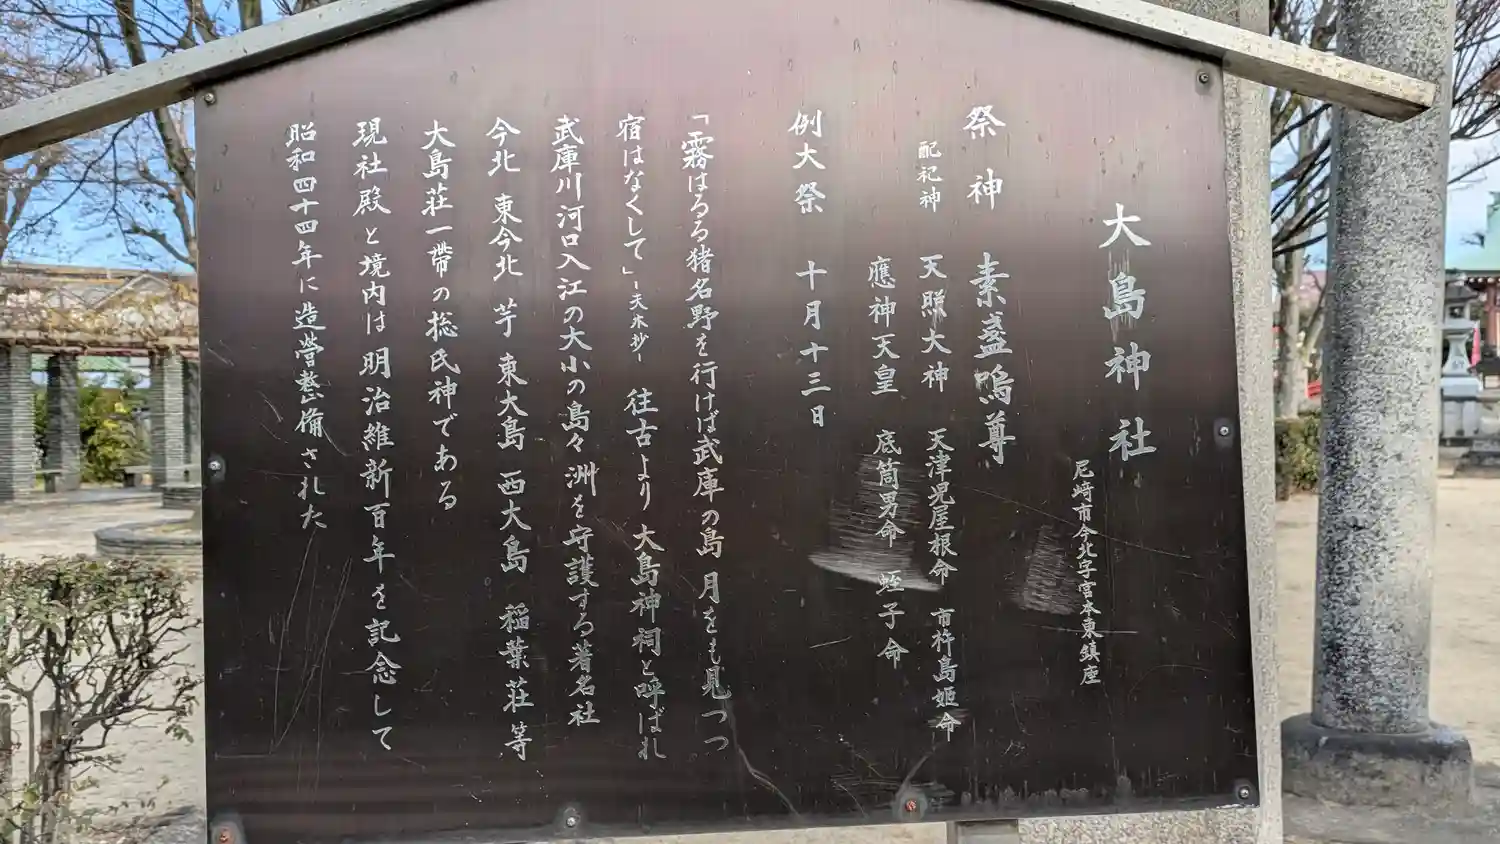 大島神社
尼崎市今北字宮本東鎮座
祭神 素盞嗚尊
配祀神 天照大神 天津児屋根命 市杵島姫命
應神天皇 底筒男命 蛭子命
例大祭 十月十三日
「霧はるる猪名野を行けば武庫の島 月をも見つつ
宿はなくして」-夫木抄- 往古より 大島神祠と呼ばれ
武庫川河口入江の大小の島々 洲を守護する著名社
今北 東今北 芋 東大島 西大島 稲葉荘等
大島荘一帶の総氏神である
現社殿と境内は明治維新百年を記念して
昭和四十四年に造營整備された